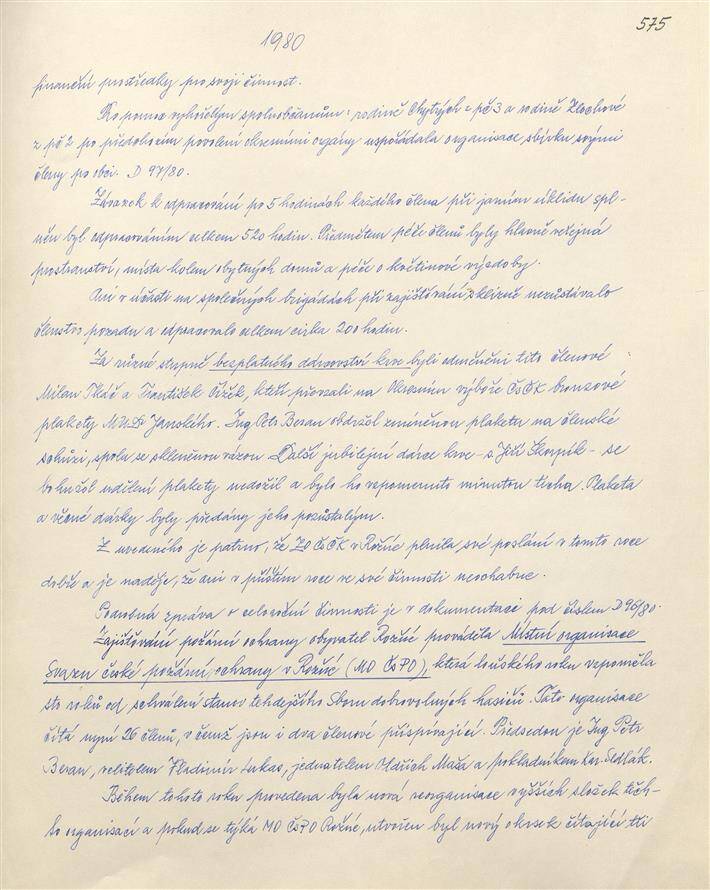 575
1980
finanční prostředky pro svoji činnost.
Ku pomoci vyhořelým spoluobčanům: rodině Chytrých z pč 3 a rodině
z pč 2 po předchozím povolení okresními orgány uspořádala organisace sbírku svými
členy po obci. D 97/80.
Závazek k odpracování po 5 hodinách každého člena při jarním úklidu spl-
něn byl odpracováním celkem 520 hodin. Předmětem péče členů byly hlavně veřejná
prostranství, místa kolem obytných domů a péče o květinové výzdoby.
Ani v účasti na společných brigádách při zajišťování sklizně nezůstávalo
členstvo pozadu a odpracovalo celkem cirka 200 hodin.
Za různé stupně bezplatného dárcovství krve byli odměněni tito členové
Milan Tkáč a František Čížek, kteří převzali na Okresním výboře ČsČK bronzové
plakety MUDr Janského. Ing Petr Beran obdržel zmíněnou plaketu na členské
schůzi, spolu se skleněnou vázou. Další jubilejní dárce krve - s Jiří Škorpík - se
bohužel udílení plakety nedožil a bylo ho vzpomenuto minutou ticha. Plaketa
a věcné dárky byly předány jeho pozůstalým.
Z uvedeného je patrno, že ZO ČsČK v Rožné plnila své poslání v tomto roce
dobře a je naděje, že ani v příštím roce ve své činnosti neochabne.
Podrobná zpráva o celoroční činnosti je v dokumentaci pod číslem D 96/80.
Zajišťování požární ochrany obyvatel Rožné prováděla Místní organisace
Svazu české požární ochrany v Rožné (MO ČsPO), která loňského roku vzpoměla
sto roků od schválení stanov tehdejšího Sboru dobrovolných hasičů. Tato organisace
čítá nyní 26 členů, v čemž jsou i dva členové přispívající. Předsedou je Ing Petr
Beran, velitelem Vladimír, jednatelem Oldřich Maža a pokladníkem Kar. Sedlák.
Během tohoto roku provedena byla nová reorganisace vyšších složek těch-
to organisací a pokud se týká MO ČsPO Rožné, utvořen byl nový okrsek čítající tři